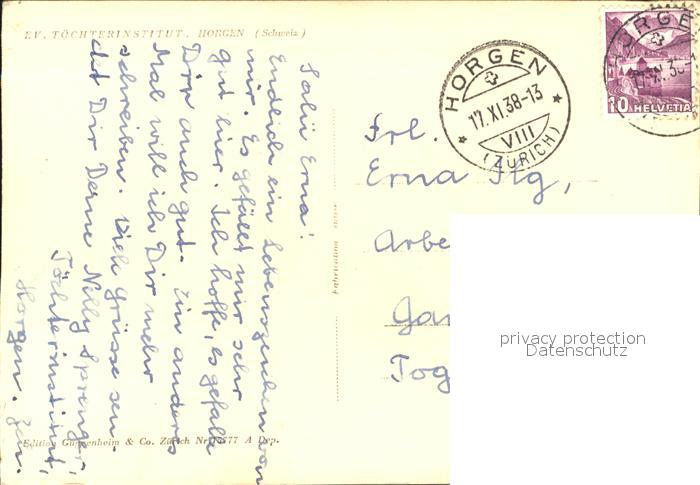 EV. TÖCHTERINSTITUT, HORGEN (Schweiz)
Salü Erna!
Endlich ein Lebenszeichen von
mir. Es gefällt mir sehr
gut hier. Ich hoffe, es gefalle
Dir auch gut. Ein anders
Mal will ich Dir mehr
schreiben. Viele Grüsse sen-
det Dir Deine Nelly Sprenger,
Töchterinstitut,
Horgen.
HORGEN
17.XI.38-13
VIII
(ZÜRICH)
HORGEN
10 HELVETIA
Frl.
Erna Ilg,
Arbe
Gan
Tog
privacy protection
Datenschutz
Edition Guggenheim & Co. Zürich Nr. 13777 A Dep.